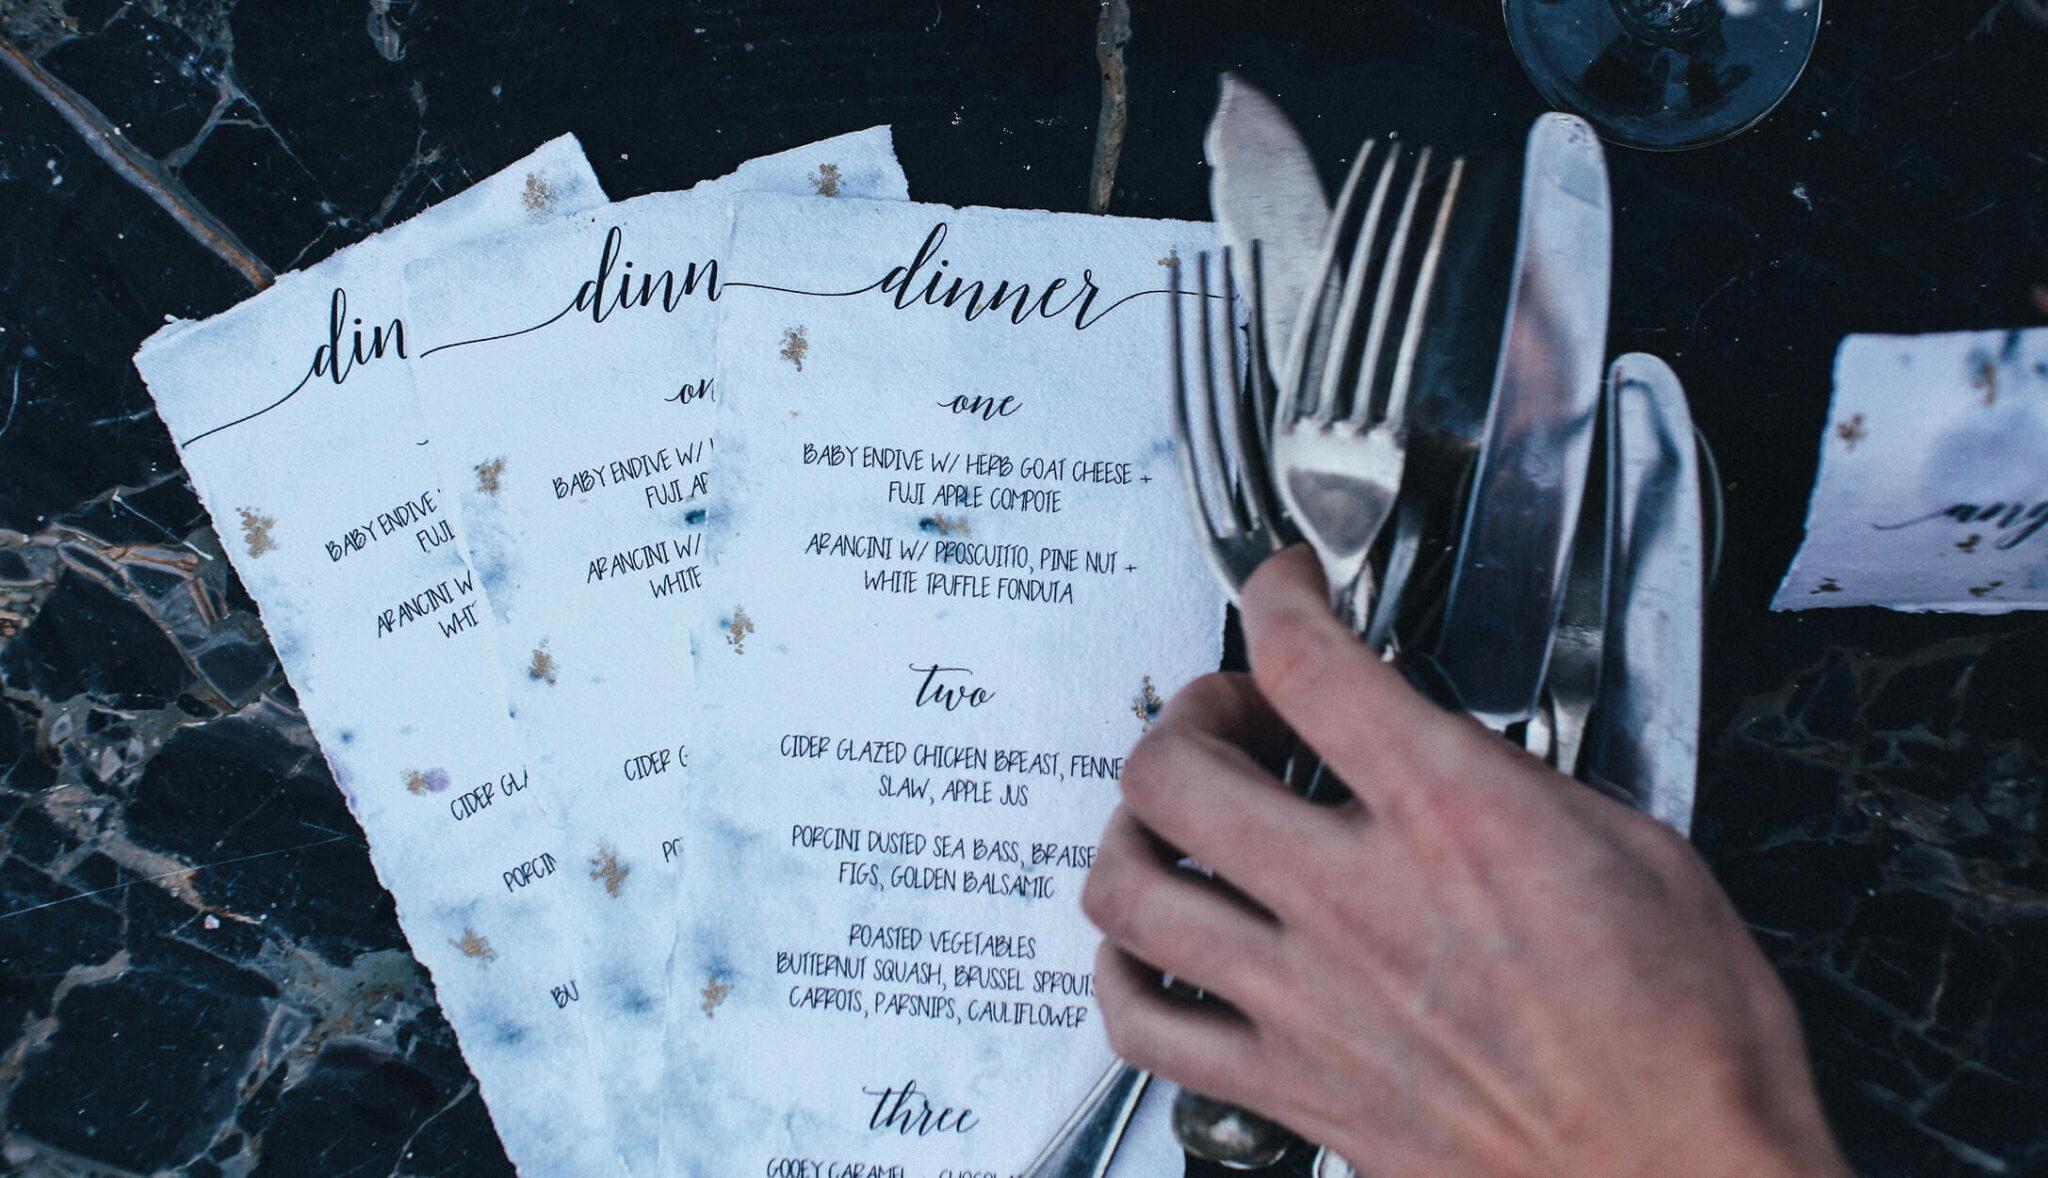 din
BABY ENDIVE
FUJI
ARANCINI W
WHIT
CIDER GLA
PORCIN
BU
dinn
on
BABY ENDIVE W/
FUJI AP
ARANCINI W/
WHITE
CIDER G
dinner
one
BABY ENDIVE W/ HERB GOAT CHEESE +
FUJI APPLE COMPOTE
ARANCINI W/ PROSCUITTO, PINE NUT +
WHITE TRUFFLE FONDUTA
two
CIDER GLAZED CHICKEN BREAST, FENNE
SLAW, APPLE JUS
PORCINI DUSTED SEA BASS, BRAISE
FIGS, GOLDEN BALSAMIC
ROASTED VEGETABLES
BUTTERNUT SQUASH, BRUSSEL SPROUTS
CARROTS, PARSNIPS, CAULIFLOWER
three
GOOEY CARAMEL